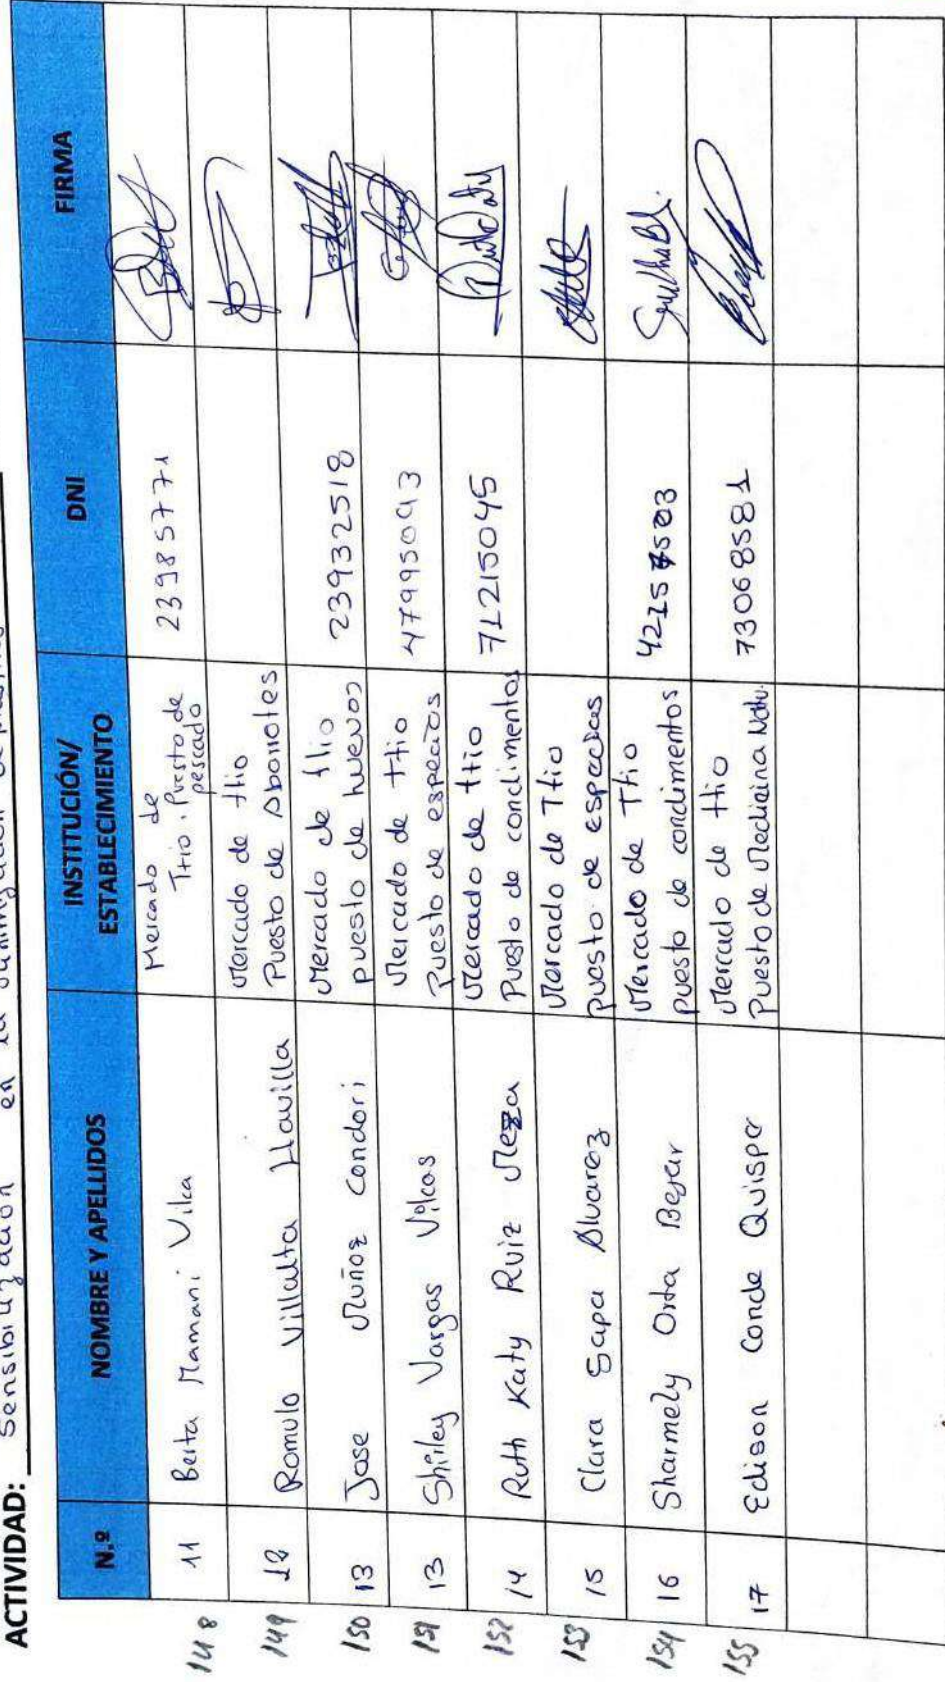 ACTIVIDAD: Sensibilización en la
N.º NOMBRE Y APELLIDOS INSTITUCIÓN/ ESTABLECIMIENTO DNI FIRMA
148 11 Berta Mamani Vilca Mercado de Ttio. Puesto de pescado 23985771
149 12 Romulo Villalta Llavilla Mercado de ttio Puesto de Abarrotes
150 13 Jose Muñoz Condori Mercado de ttio puesto de huevos 23932518
151 13 Shirley Vargas Vilcas Mercado de ttio Puesto de especias 47995093
152 14 Ruth Katy Ruiz Meza Mercado de ttio Puesto de condimentos 71215045
153 15 Clara Sapa Alvarez Mercado de Ttio puesto de especias
154 16 Sharmely Orta Bejar Mercado de Ttio puesto de condimentos
155 17 Edison Conde Quispe Mercado de ttio Puesto de Medicina Natu. 73068581